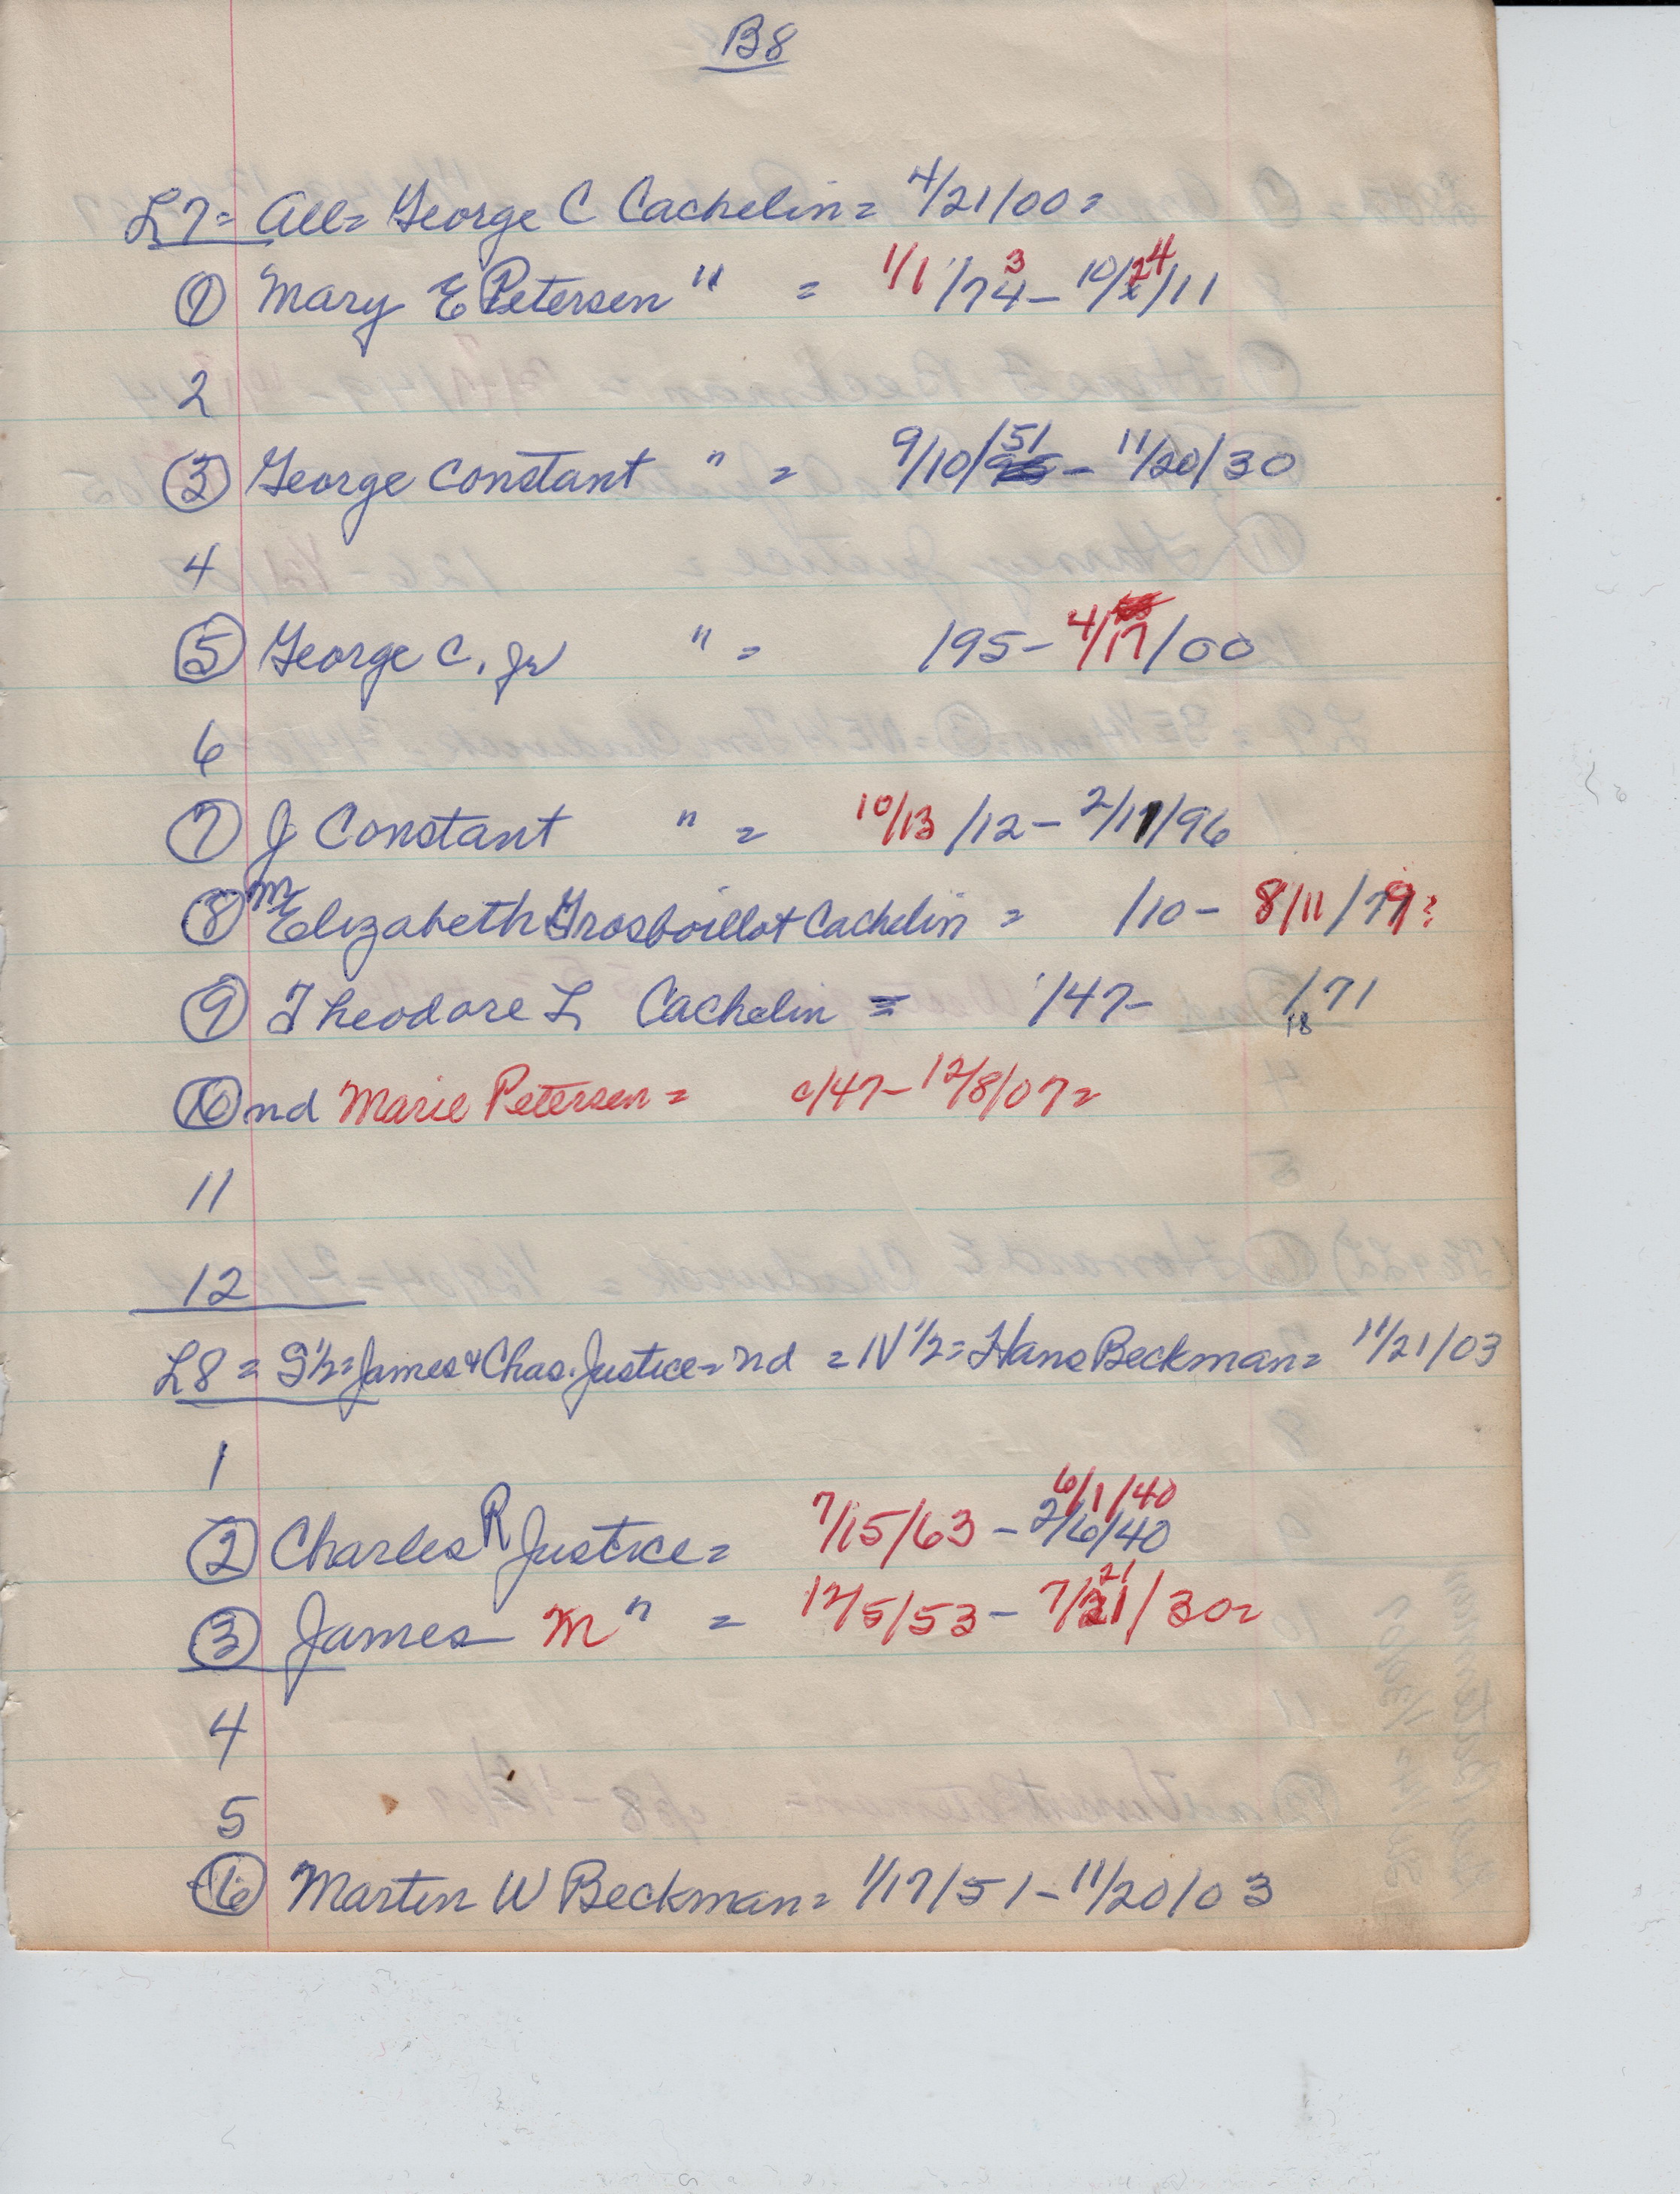 B8
L7= All= George C Cachelin= 4/21/00=
1 Mary E Petersen " = 1/1/74 3 - 10/24/11
2
3 George Constant " = 9/10/51 - 11/20/30
4
5 George C. Jr " = /95- 4/17/00
6
7 J Constant " = 10/13/12 - 2/17/96
8 M Elizabeth Grosboillot Cachelin = /10 - 8/11/79?
9 Theodore L Cachelin = /47- /71
18
10 nd Marie Petersen = c/47- 12/8/07=
11
12
L8 = S½=James & Chas. Justice= nd = N½= Hans Beckman= 11/21/03
1
6/1/40
2 Charles R Justice= 7/15/63 - 2/6/40
21
3 James M " = 12/5/53 - 7/21/30=
4
5
6 Marten W Beckman= 1/17/51 - 11/20/03